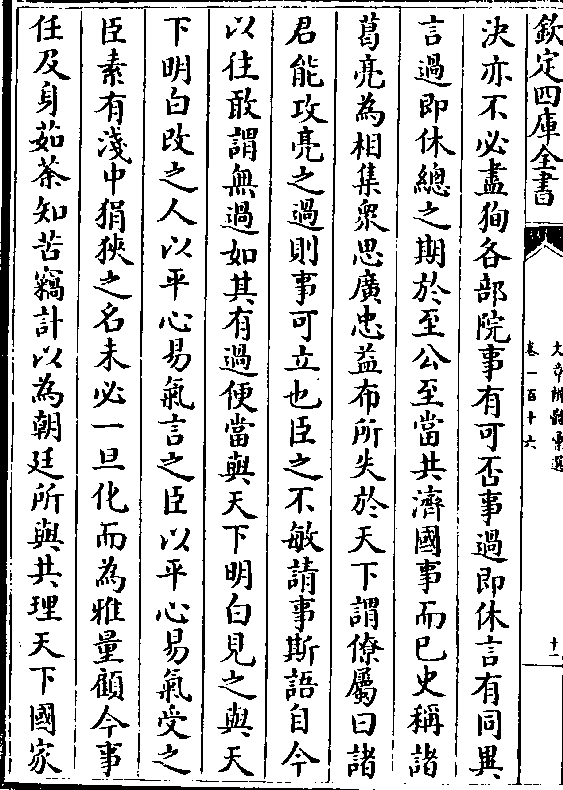 欽定四庫全書
文章辨體彙選
卷一百十六
十二
決亦不必盡狥各部院事有可否事過即休言有同異
言過即休總之期於至公至當共濟國事而已史稱諸
葛亮為相集衆思廣忠益布所失於天下謂僚屬曰諸
君能攻亮之過則事可立也臣之不敏請事斯語自今
以往敢謂無過如其有過便當與天下明白見之與天
下明白改之人以平心易氣言之臣以平心易氣受之
臣素有淺中狷狹之名未必一旦化而為雅量顧今事
任及身茹荼知苦竊計以為朝廷所與共理天下國家